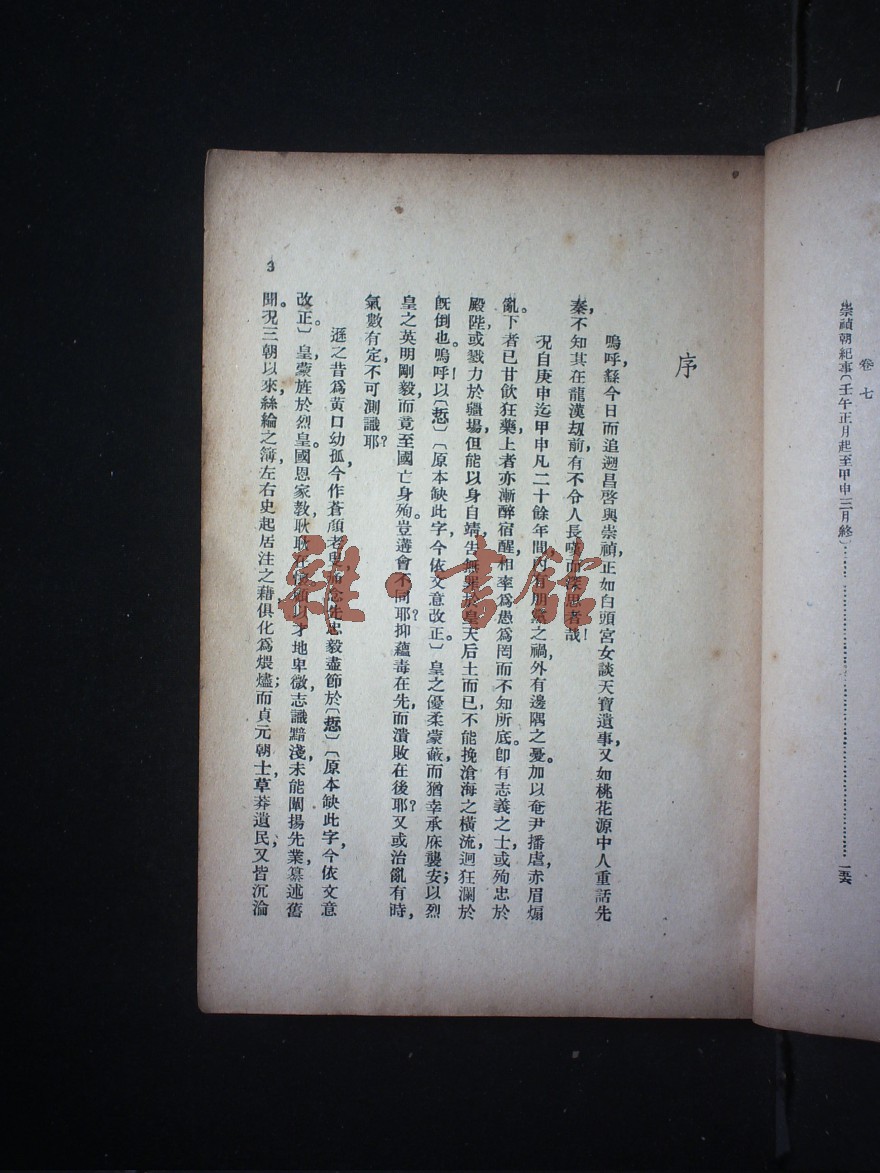 卷七
崇禎朝紀事〔壬午正月起至甲申三月終〕……一五六
序
嗚呼！繇今日而追遡昌啓與崇禎，正如白頭宮女談天寶遺事，又如桃花源中人重話先
秦，不知其在龍漢刼前，有不令人長嘆而深思者哉！
況自庚申迄甲申凡二十餘年間，內有朋黨之禍，外有邊隅之憂。加以奄尹播虐，赤眉煽
亂。下者已甘飲狂藥，上者亦漸醉宿醒，相率爲愚爲罔而不知所底。卽有志義之士，或殉忠於
殿陛，或戮力於疆場，但能以身自靖，告無罪於皇天后土而已，不能挽滄海之橫流，迴狂瀾於
旣倒也。嗚呼！以〔悊〕〔原本缺此字，今依文意改正〕皇之優柔蒙蔽，而猶幸承庥襲安；以烈
皇之英明剛毅，而竟至國亡身殉。豈遘會不同耶？抑蘊毒在先，而潰敗在後耶？又或治亂有時，
氣數有定，不可測識耶？
遜之昔爲黃口幼孤，今作蒼顏老叟，痛念先忠毅盡節於〔悊〕〔原本缺此字，今依文意
改正〕皇，蒙旌於烈皇。國恩家教，耿耿在 以才地卑微，志識黯淺，未能闡揚先業，纂述舊
聞。況三朝以來，絲綸之簿，左右史起居注之藉，俱化爲煨燼；而貞元朝士，草莽遺民，又皆沉淪
3
雜·書館